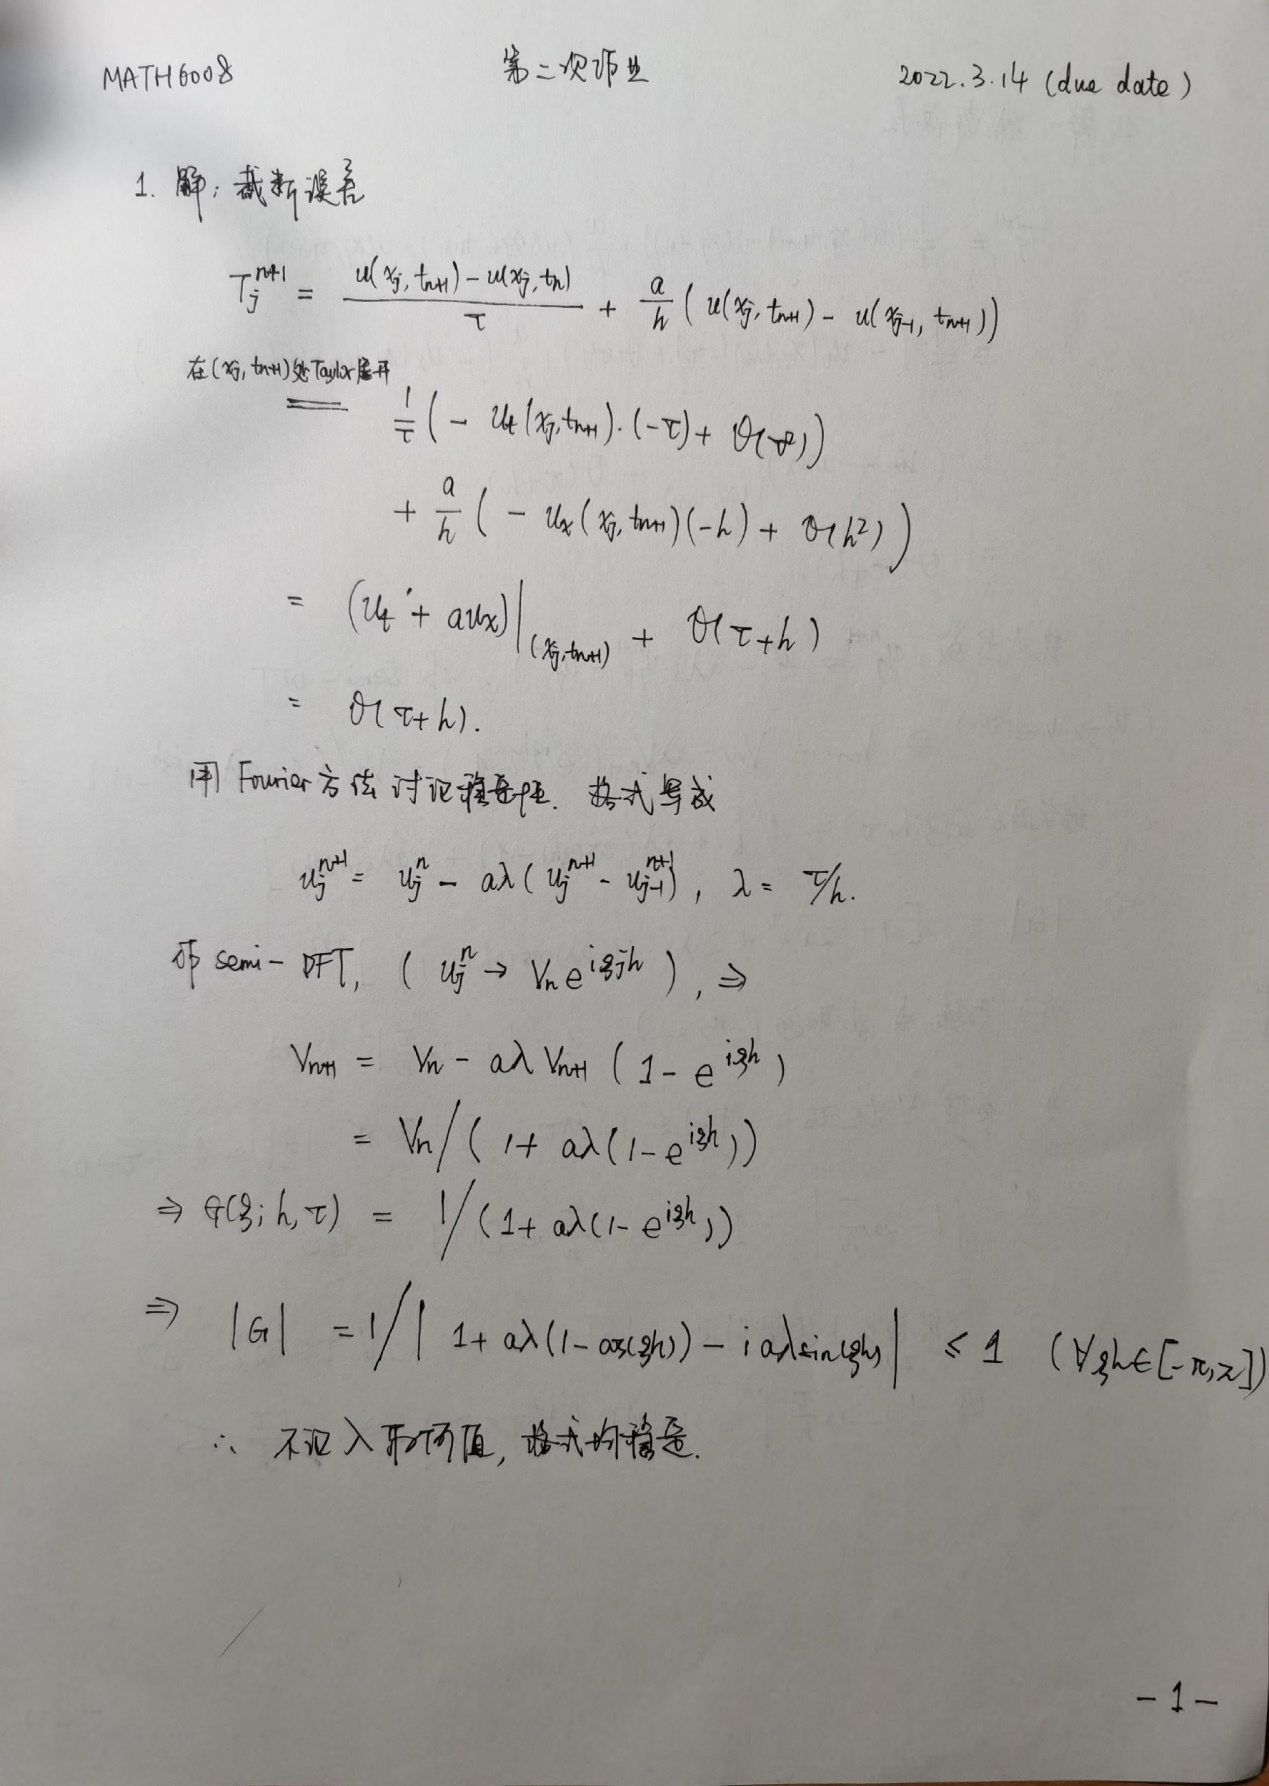 MATH6008 第二次作业 2022.3.14 (due date)
1. 解: 截断误差
T_j^{n+1} = \frac{u(x_j, t_{n+1}) - u(x_j, t_n)}{τ} + \frac{a}{h} ( u(x_j, t_{n+1}) - u(x_{j-1}, t_{n+1}) )
在(x_j, t_{n+1})处Taylor展开
= \frac{1}{τ} ( - u_t(x_j, t_{n+1}) · (-τ) + O(τ²) )
+ \frac{a}{h} ( - u_x(x_j, t_{n+1})(-h) + O(h²) )
= (u_t + au_x)|_{(x_j, t_{n+1})} + O(τ+h)
= O(τ+h).
用 Fourier 方法讨论稳定性. 格式写成
u_j^{n+1} = u_j^n - aλ( u_j^{n+1} - u_{j-1}^{n+1} ), λ = τ/h.
作 semi-DFT, ( u_j^n → V_n e^{iξjh} ), ⇒
V_{n+1} = V_n - aλ V_{n+1} ( 1 - e^{iξh} )
= V_n / ( 1 + aλ(1 - e^{iξh}) )
⇒ G(ξ; h, τ) = 1 / ( 1 + aλ(1 - e^{iξh}) )
⇒ |G| = 1 / | 1 + aλ(1 - cos(ξh)) - i aλ sin(ξh) | ≤ 1 (∀ξh∈[-π, π])
∴ 不论 λ 取何值, 格式均稳定.
- 1 -